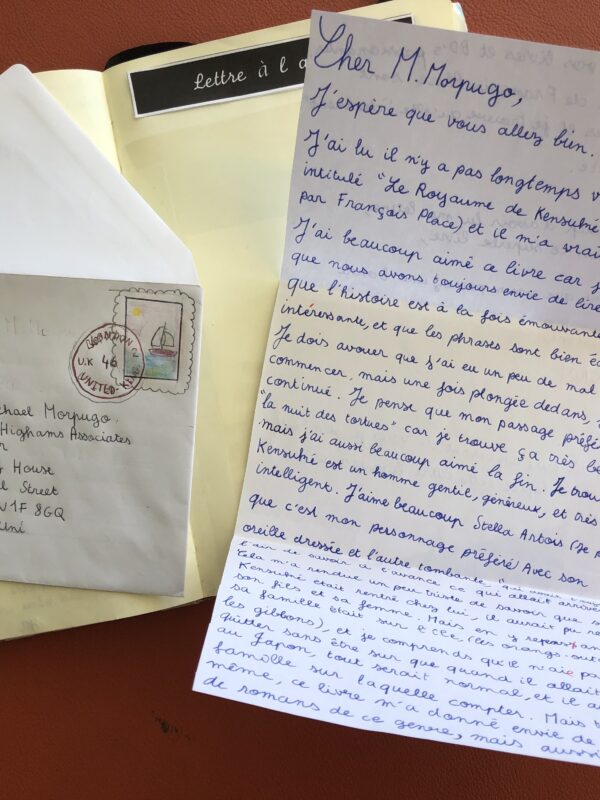 Lettre à l'a
Cher M. Morpugo,
J'espère que vous allez bien.
J'ai lu il n'y a pas longtemps v
intitulé "Le Royaume de Kensuké
par François Place) et il m'a vrai
J'ai beaucoup aimé ce livre car j
que nous avons toujours envie de lire
que l'histoire est à la fois émouvante
intéressante, et que les phrases sont bien éc
Je dois avouer que j'ai eu un peu de mal
commencer, mais une fois plongée dedans,
continué. Je pense que mon passage préfér
"la nuit des tortues" car je trouve ça très be
mais j'ai aussi beaucoup aimé la fin. Je trou
Kensuké est un homme gentil, généreux, et très
intelligent. J'aime beaucoup Stella Artois (je p
que c'est mon personnage préféré Avec son
oreille dressée et l'autre tombante
l'air de savoir à l'avance ce qui allait arrive
Cela m'a rendue un peu triste de savoir que s
Kensuké était rentré chez lui, il aurait pu re
son fils et sa femme. Mais en y repensant
sa famille était sur l'île (les orangs-outa
les gibbons), et je comprends qu'il n'aie pa
quitter sans être sur que quand il allait
au Japon, tout serait normal, et il a
famille sur laquelle compter. Mais
même, ce livre m'a donné envie de
de romans de ce genre, mais aussi
LONDON
U.K 46
UNITED-K
chael Morpugo,
Highams Associates
House
Street
1F 8GQ
uni